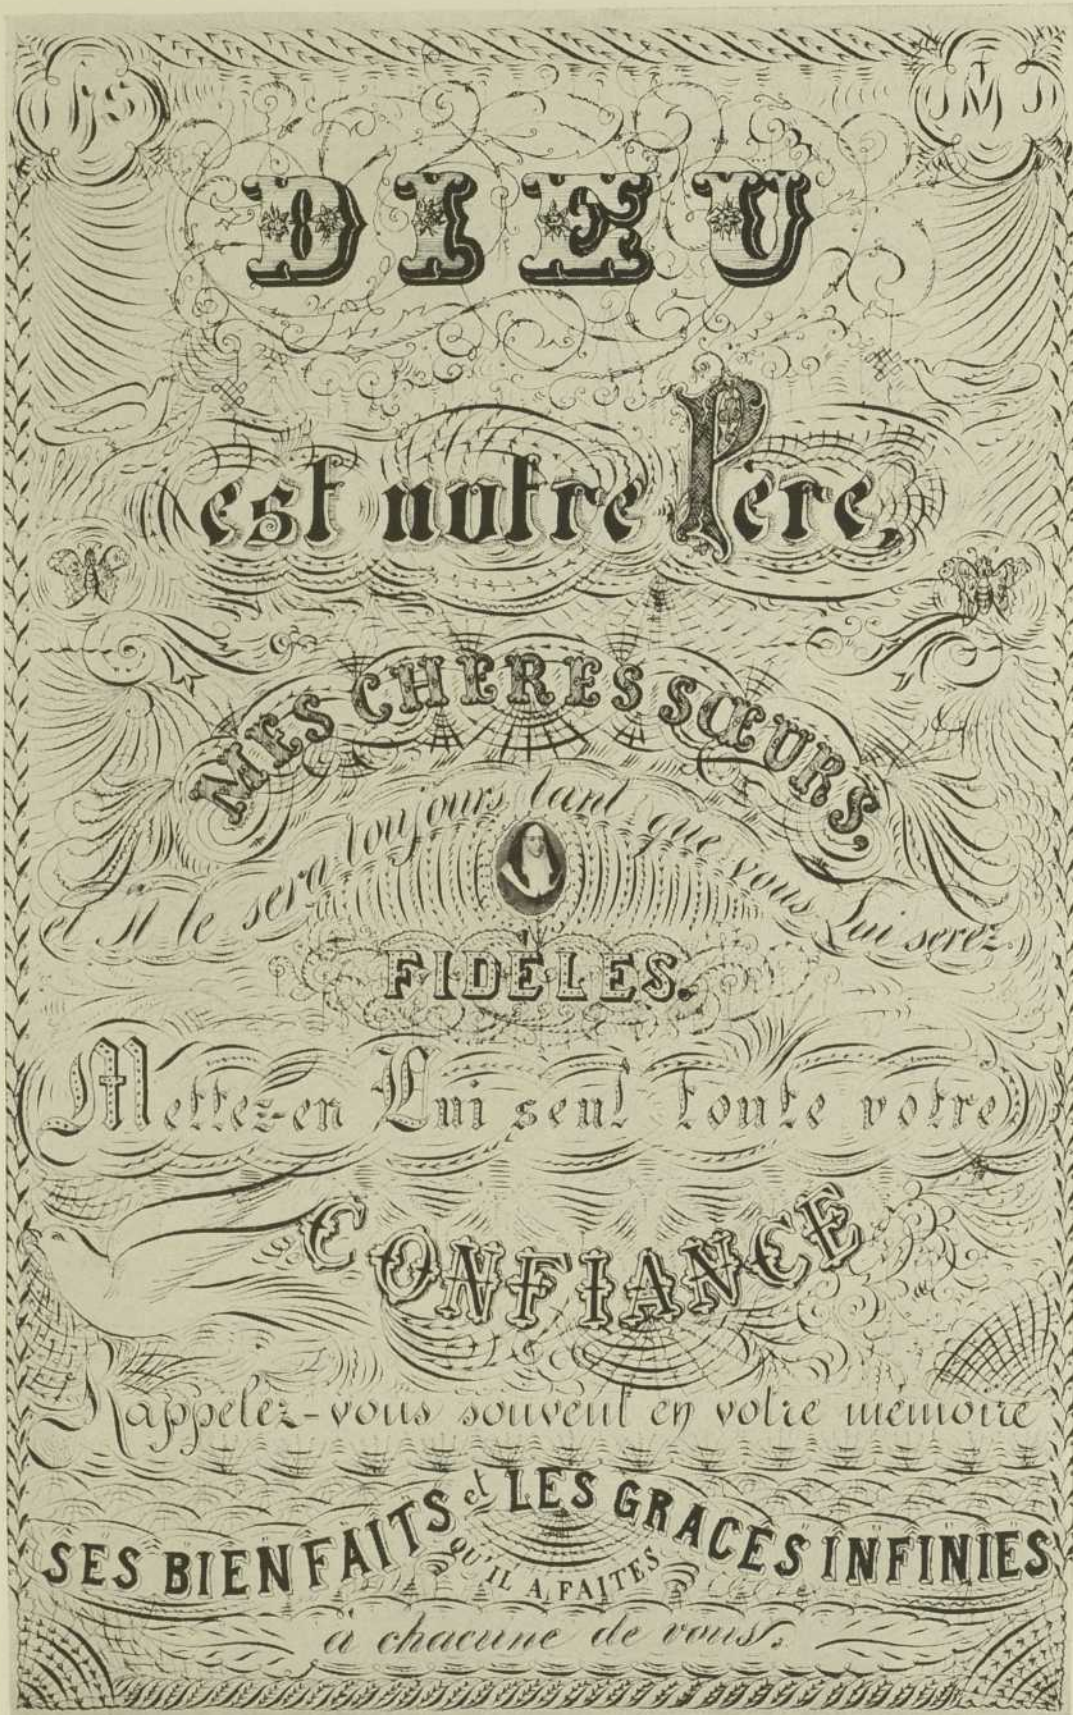 JHS
JMJ
DIEU
est notre Père,
MES CHERES SŒURS
et il le sera toujours tant que vous Lui serez
FIDÈLES.
Mettez-en Lui seul toute votre
CONFIANCE
Rappelez-vous souvent en votre mémoire
SES BIENFAITS et LES GRACES INFINIES
QU'IL A FAITES
à chacune de vous.